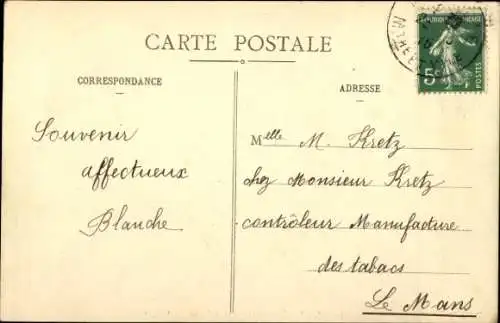 CARTE POSTALE
CORRESPONDANCE
ADRESSE
Souvenir
affectueux
Blanche.
Melle M. Kretz
chez Monsieur Kretz
contrôleur Manufacture
des tabacs
Le Mans
5
POSTES